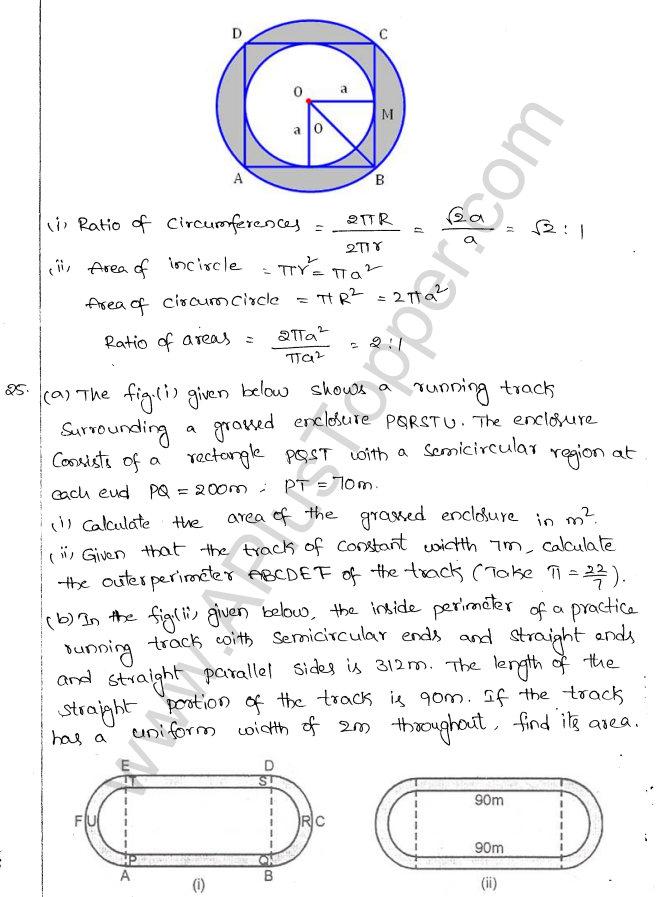 D C
O a
M
a O
A B
(i) Ratio of circumferences = 2πR / 2πr = √2a / a = √2 : 1
(ii) Area of incircle = πr² = πa²
Area of circumcircle = πR² = 2πa²
Ratio of areas = 2πa² / πa² = 2:1
25. (a) The fig.(i) given below shows a running track
surrounding a grassed enclosure PQRSTU. The enclosure
consists of a rectangle PQST with a semicircular region at
each end PQ = 200m ; PT = 70m.
(i) Calculate the area of the grassed enclosure in m².
(ii) Given that the track of constant width 7m, calculate
the outer perimeter ABCDEF of the track (Take π = 22/7).
(b) In the fig(ii) given below, the inside perimeter of a practice
running track with semicircular ends and straight ends
and straight parallel sides is 312m. The length of the
straight portion of the track is 90m. If the track
has a uniform width of 2m throughout, find its area.
E D
T S
F U R C
P Q
A B
(i)
90m
90m
(ii)
www.APlusTopper.com